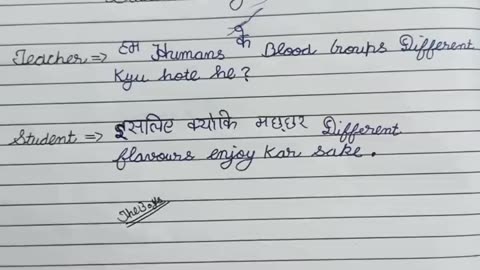 Teacher => हम Humans के Blood Groups Different
Kyu hote he?
Student => इसलिए क्योकि मछ्छर Different
flavours enjoy Kar sake.